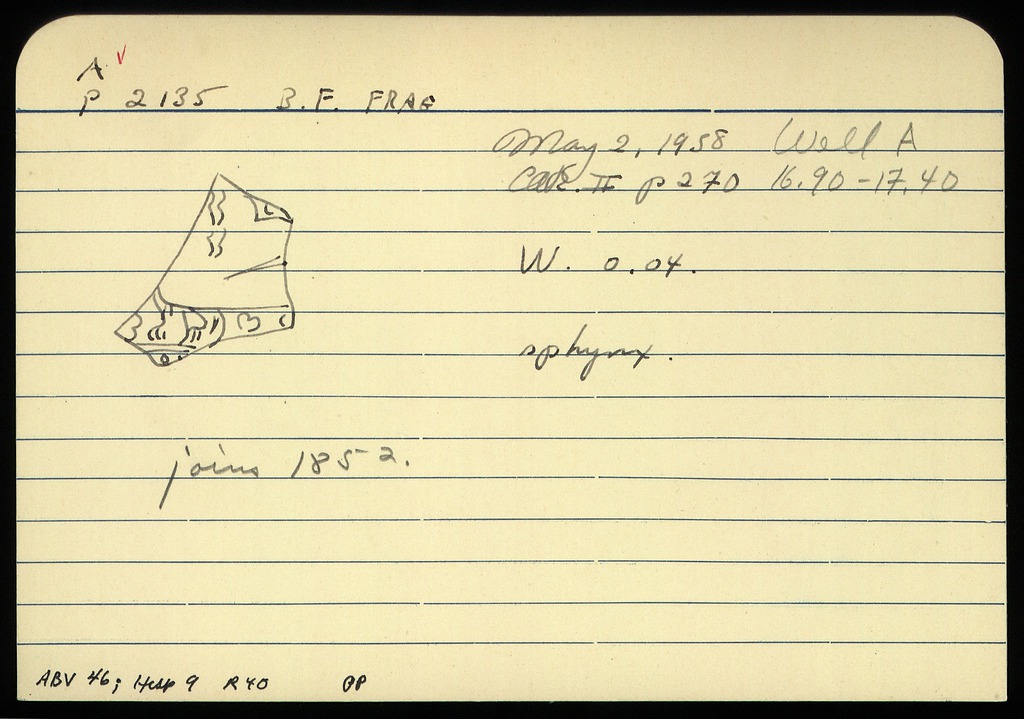 A
P 2135 B.F. FRAG
May 2, 1958 Well A
II p 270 16.90-17.40
W. 0.04.
sphynx.
joins 1852.
ABV 46; Hesp 9 R40 OP